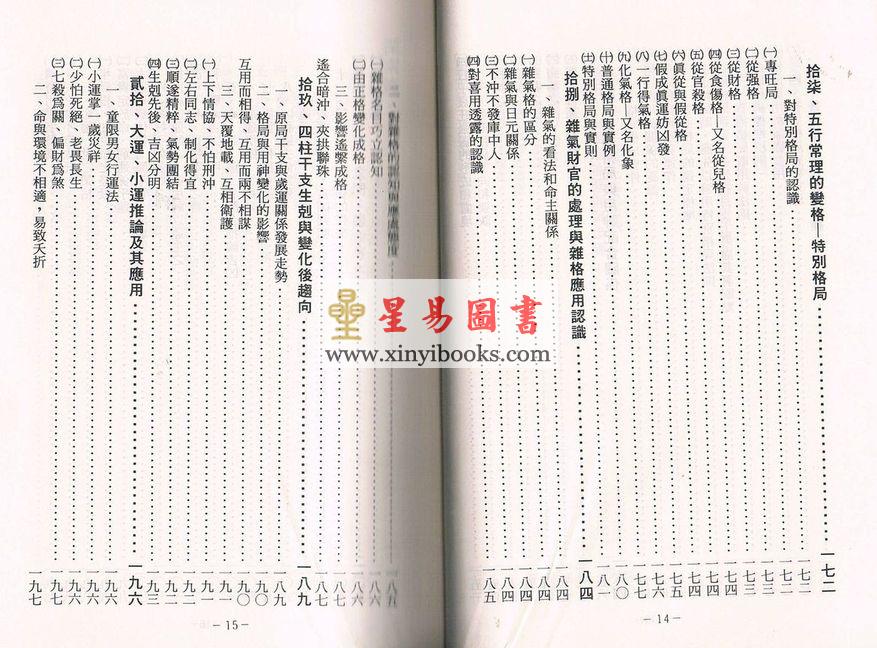 拾柒、五行常理的變格—特別格局 一七二
一、對特別格局的認識 一七二
㈠專旺局 一七二
㈡從强格 一七三
㈢從財格 一七三
㈣從食傷格—又名從兒格 一七四
㈤從官殺格 一七四
㈥眞從與假從格 一七五
㈦假成眞運妨凶發 一七六
㈧一行得氣格 一七七
㈨化氣格—又名化象 一八〇
㈩普通格局與實例 一八一
㈩特別格局與實則
拾捌、雜氣財官的處理與雜格應用認識 一八四
一、雜氣的看法和命主關係 一八四
㈠雜氣格的區分 一八四
㈡雜氣與日元關係 一八四
㈢不沖不發庫中人 一八五
㈣對喜用透露的認識
—14—
二、對雜格的認知與應處態度 一八五
㈠雜格名目巧立認知 一八六
㈡由正格變化成格 一八六
三、影響遙繫成格 一八七
遙合暗沖、夾拱聯珠 一八七
拾玖、四柱干支生剋與變化後趨向 一八九
一、原局干支與歲運關係發展走勢 一八九
二、格局與用神變化的影響 一九〇
互用而相得、互用而兩不相謀 一九〇
三、天覆地載、互相衛護 一九一
㈠上下情協、不怕刑沖 一九一
㈡左右同志、制化得宜 一九二
㈢順遂精粹、氣勢團結 一九二
㈣生剋先後、吉凶分明 一九三
貳拾、大運、小運推論及其應用 一九六
一、童限男女行運法 一九六
㈠小運掌一歲災祥 一九六
㈡少怕死絕、老畏長生 一九六
㈢七殺爲關、偏財爲煞 一九七
二、命與環境不相適，易致夭折 一九七
—15—
星易圖書
www.xinyibooks.com